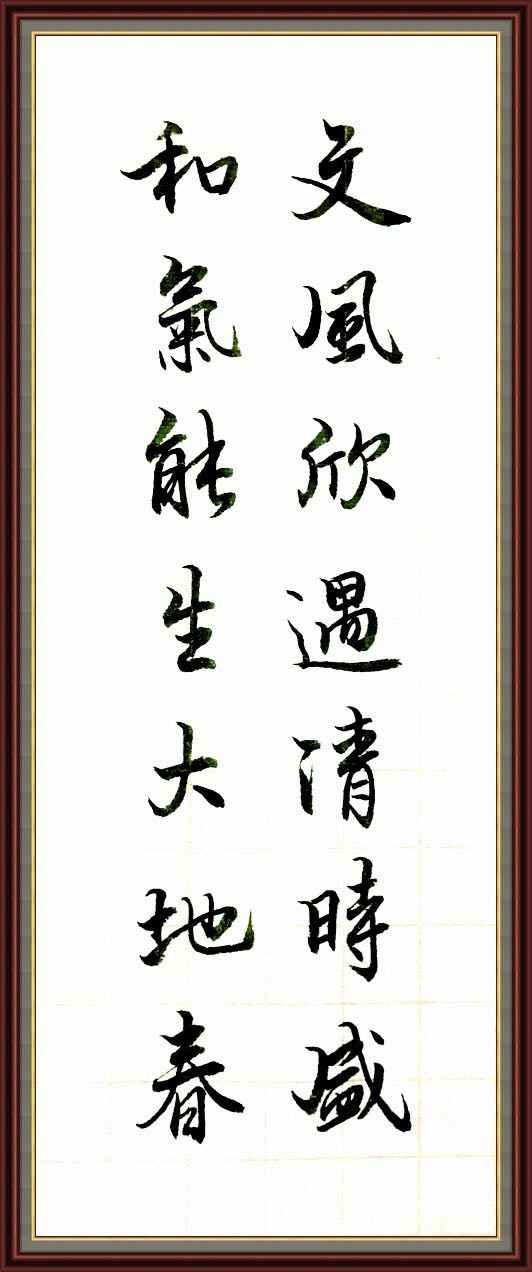 文風欣遇清時盛
和氣能生大地春